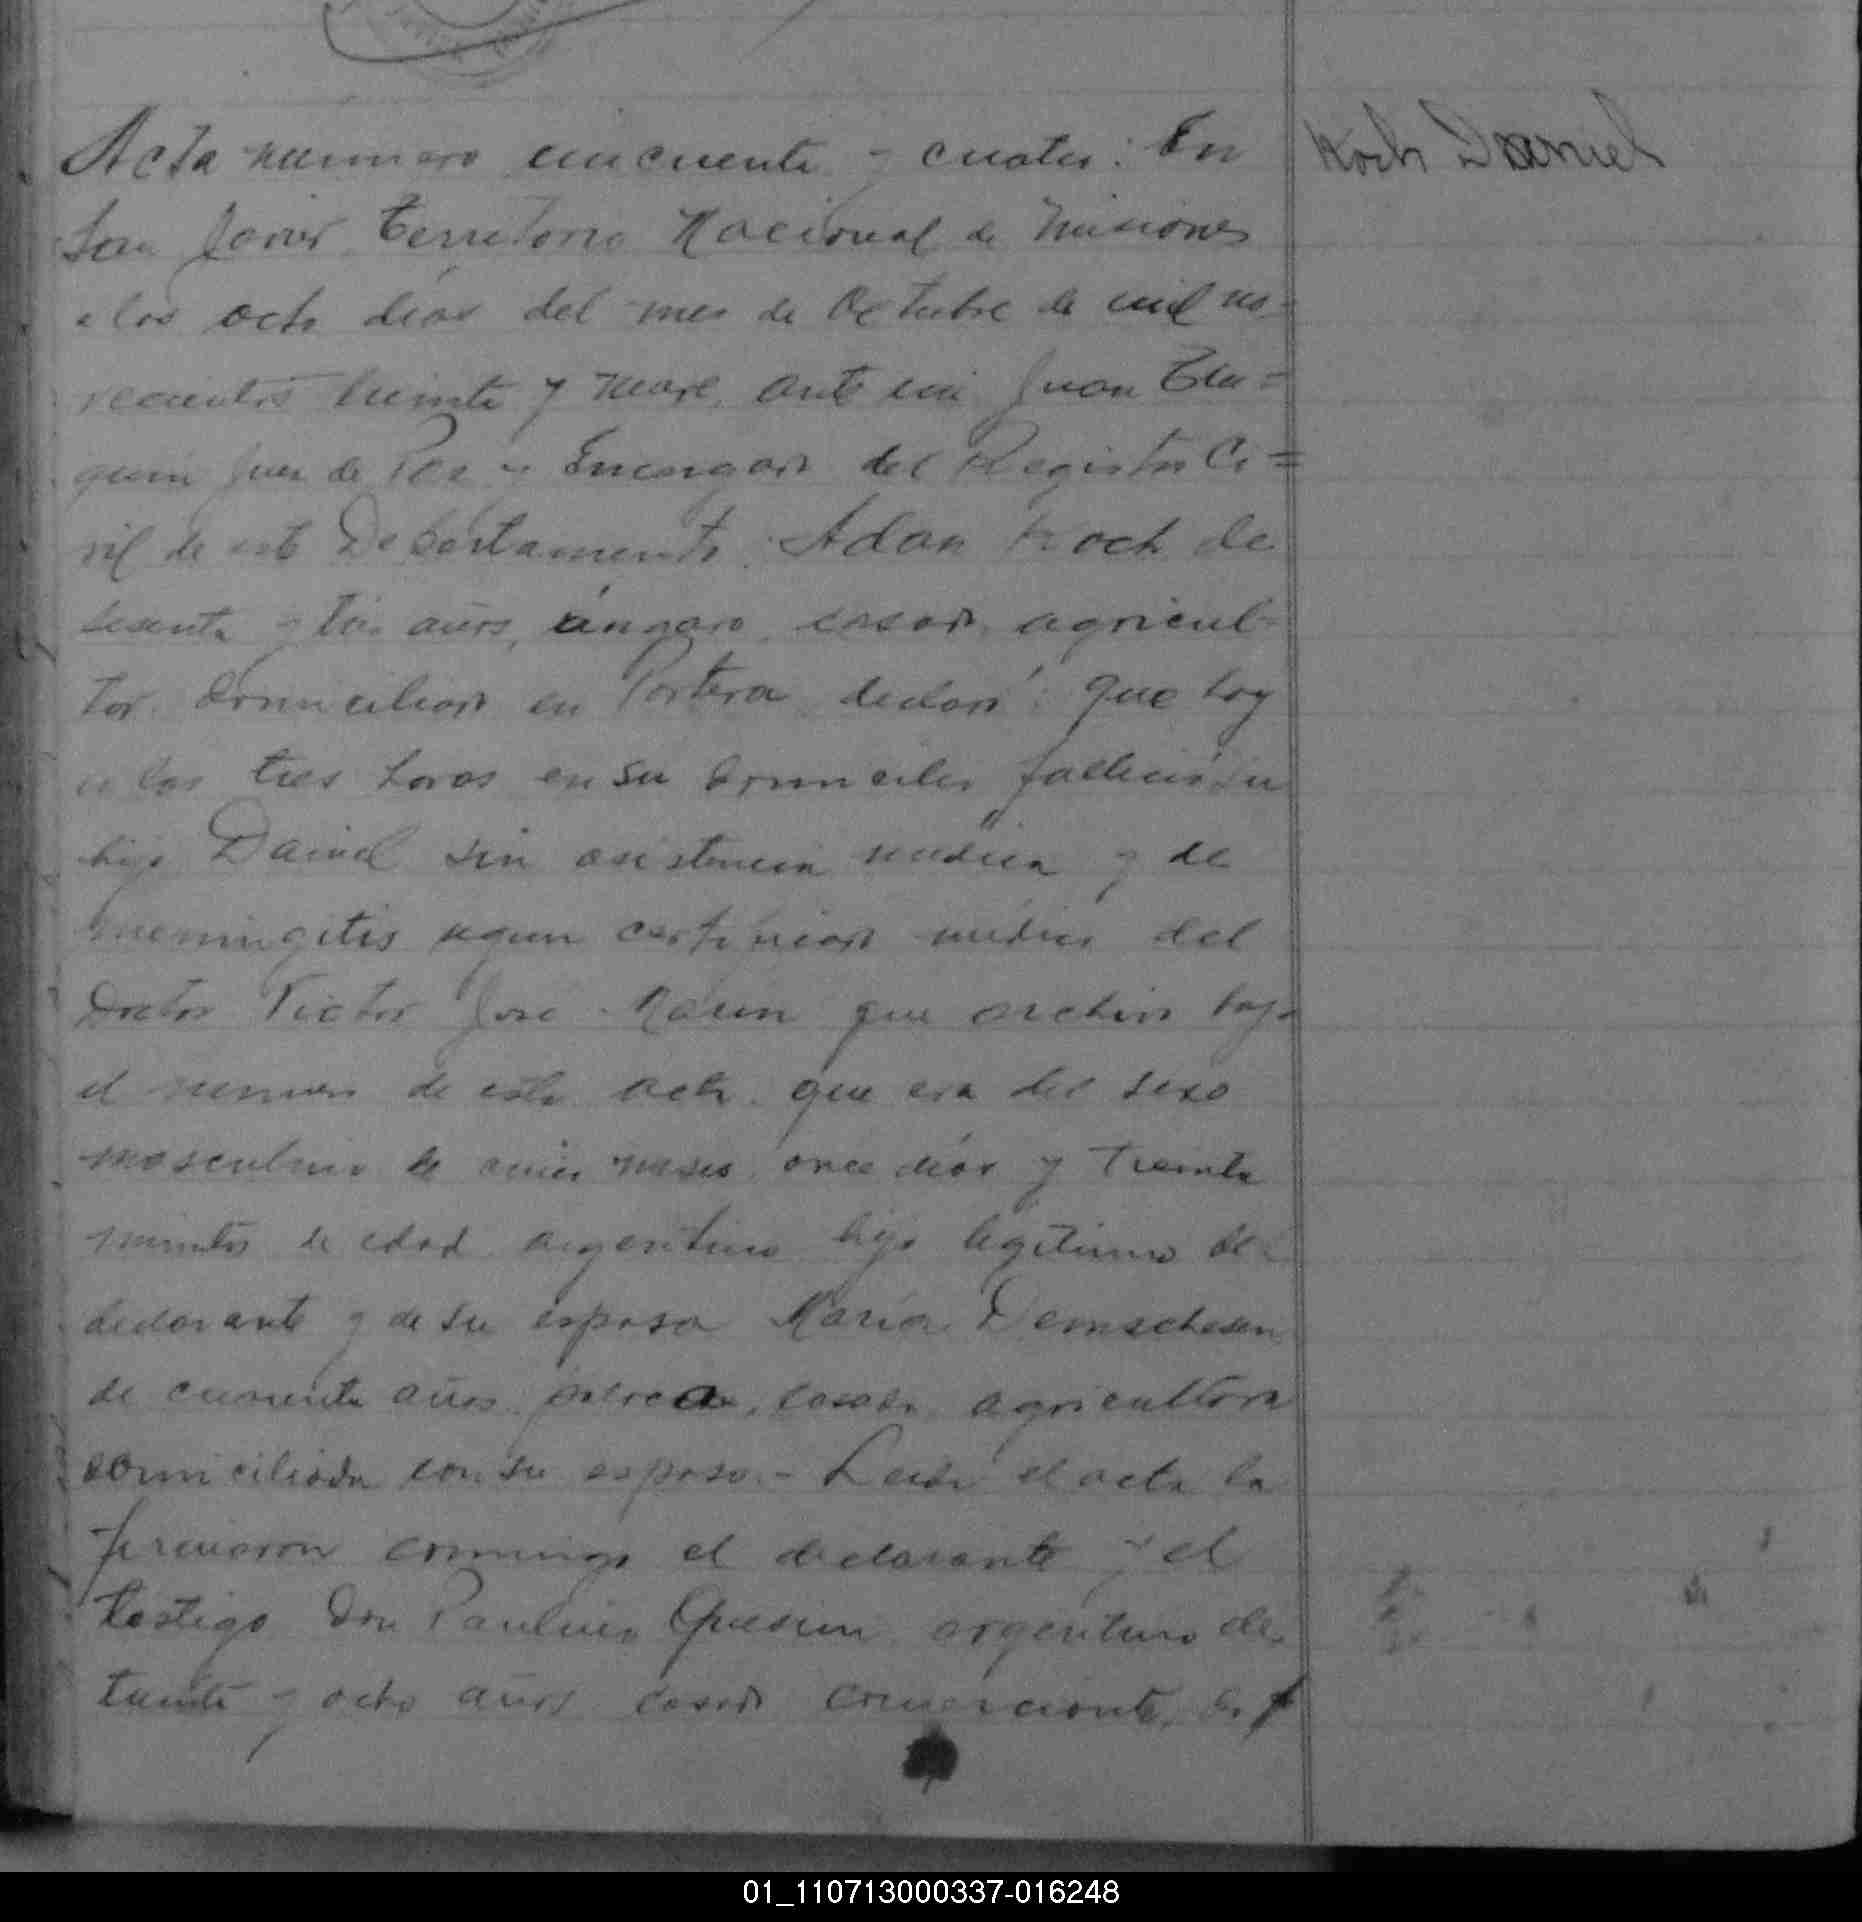 Acta numero cincuenta y cuatro: En
Koch Daniel
San Javier Territorio Nacional de Misiones
a los ocho dias del mes de Octubre de mil no-
vecientos veinte y nueve, ante mi Juan
Juez de Paz y Encargado del Registro Ci=
vil de este Departamento: Adan Koch de
sesenta y tres años, casado, agricul-
tor domiciliado en Portera declaró: Que hoy
a las tres horas en su domicilio falleció su
hijo Daniel sin asistencia medica y de
meningitis segun certificado medico del
Doctor Victor José Marin que archivo bajo
el numero de esta acta que era del sexo
masculino de meses once dias y treinta
minutos de edad argentino hijo legitimo del
declarante y de su esposa Maria
de cuarenta años casada, agricultora
domiciliada con su esposo.- Leida el acta la
firmaron conmigo el declarante y el
testigo Don Paulino argentino de
treinta y ocho años casado comerciante,
01_110713000337-016248